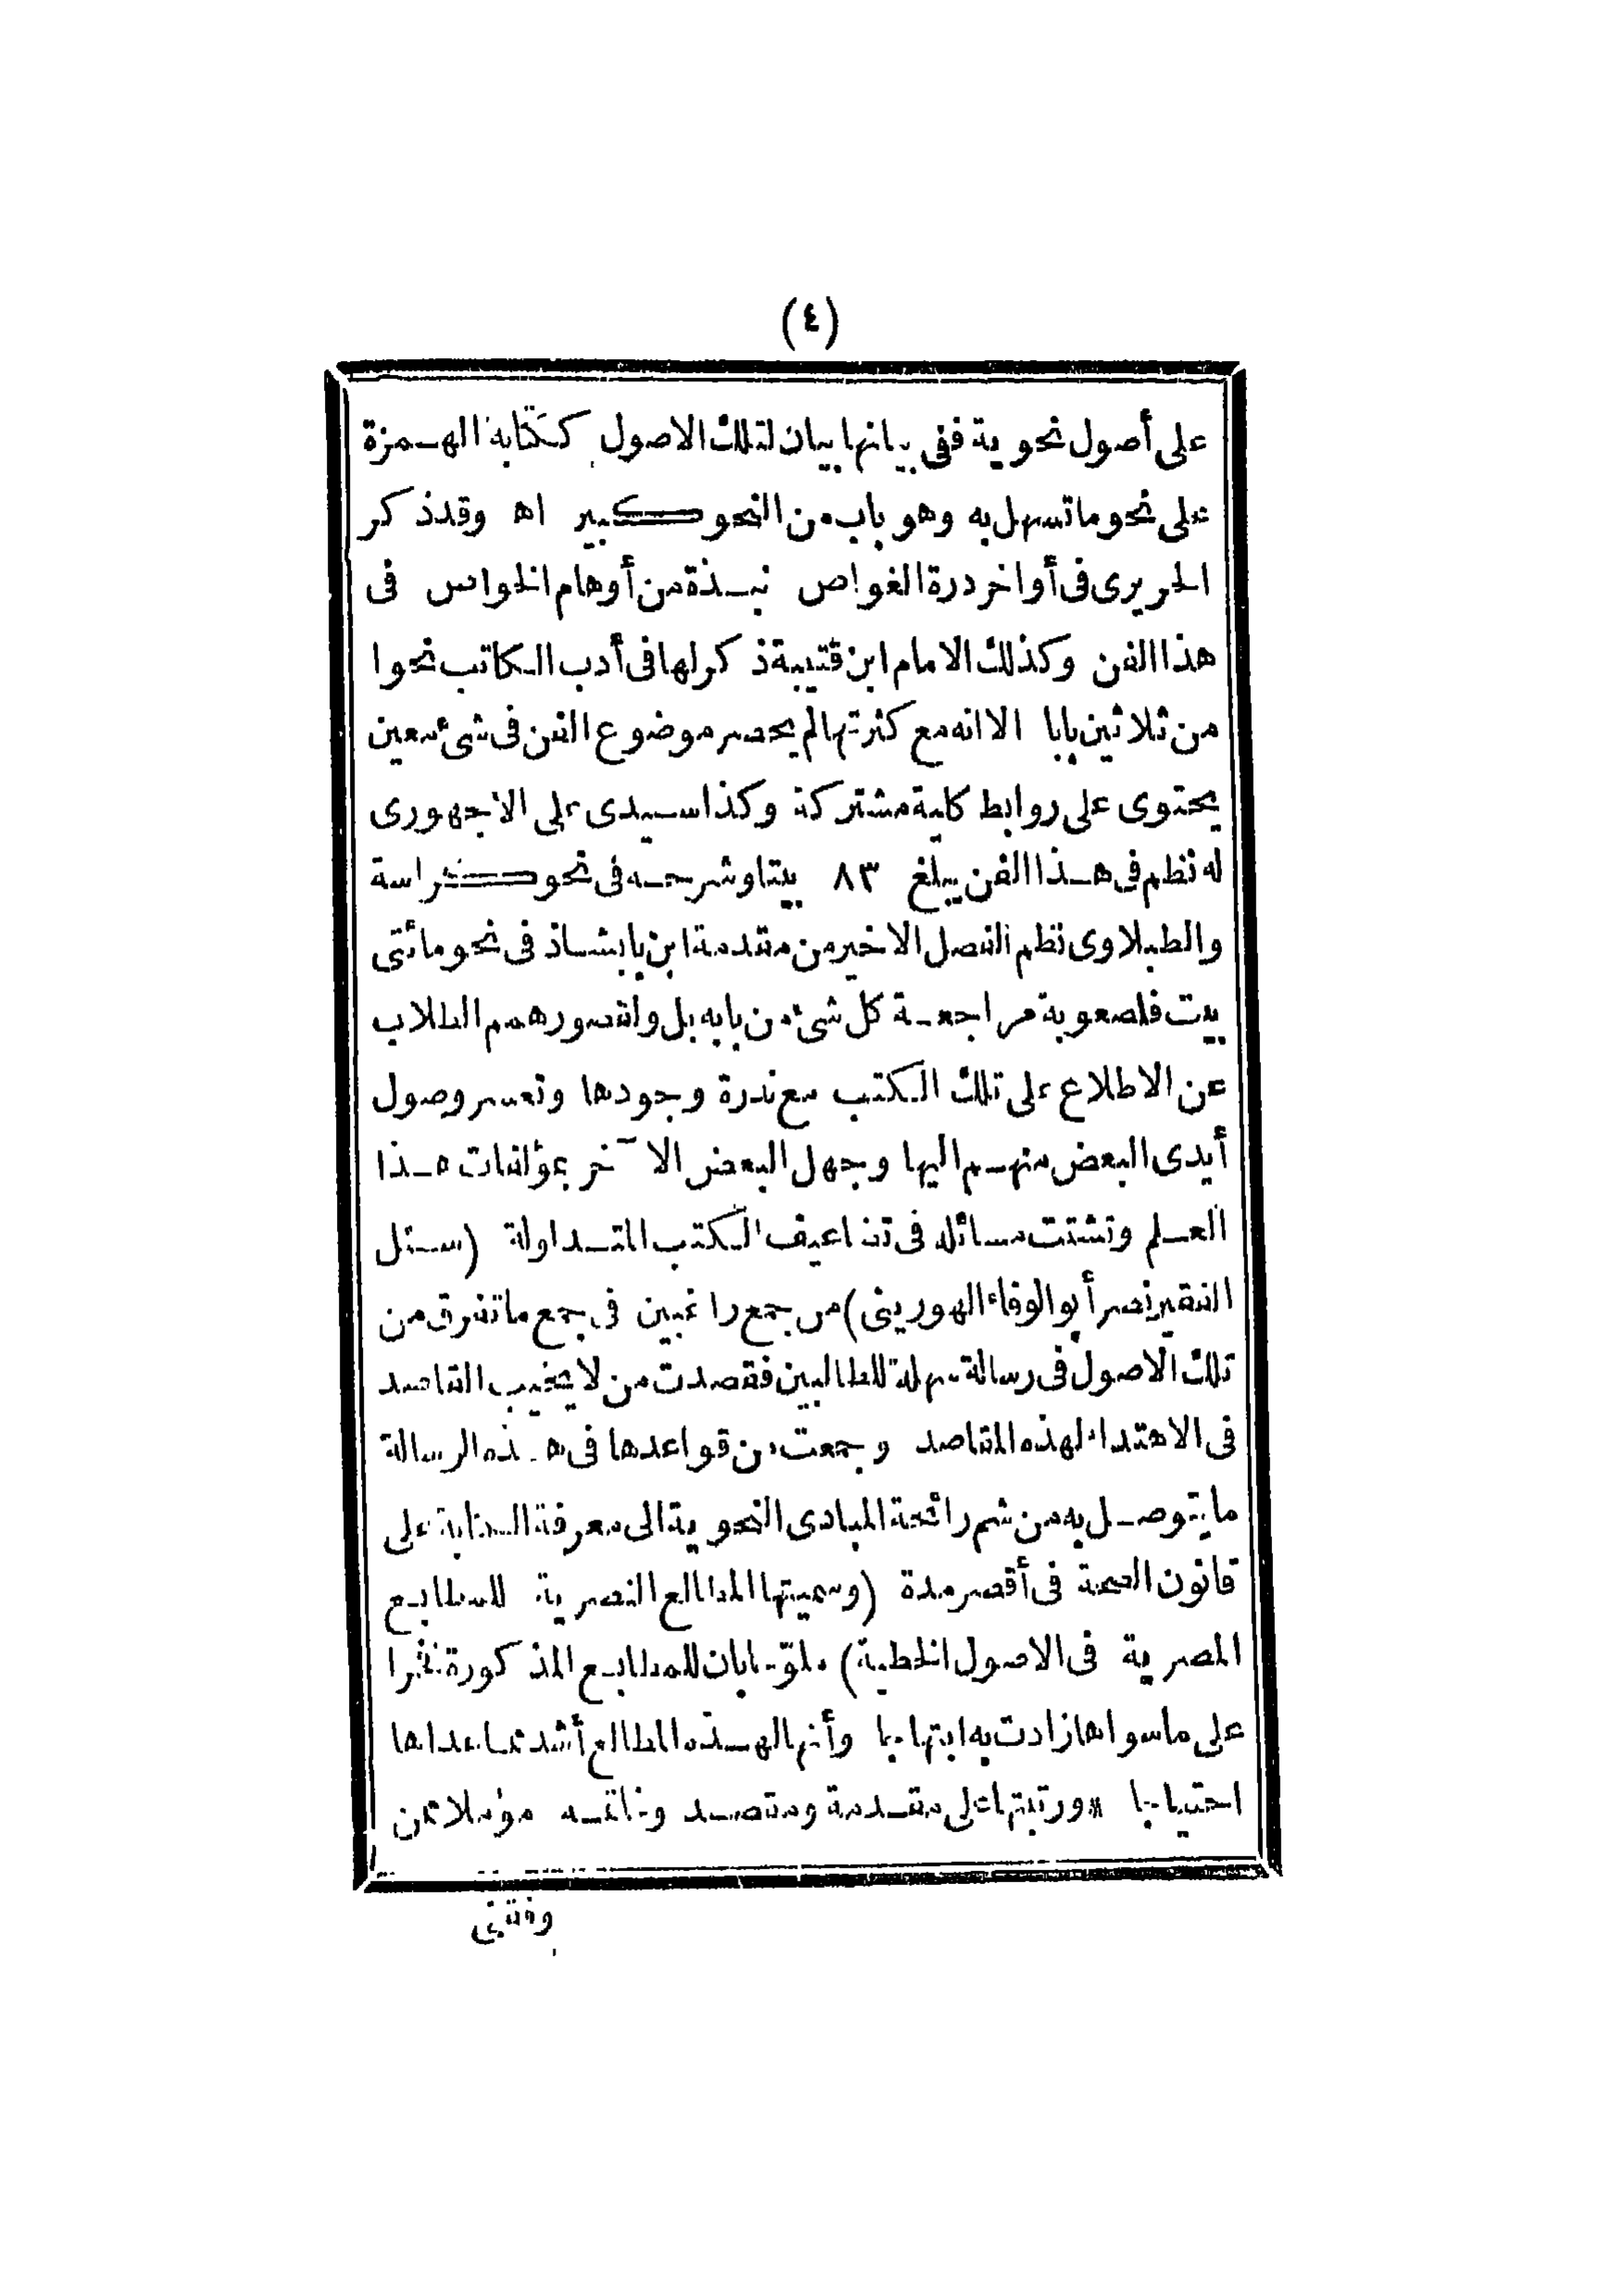 (٤)
على أصول نحوية ففى بيانها بيان لتلك الاصول ككتابة الهمزة
على نحو ما تسهل به وهو باب من النحو كبير اه وقد ذكر
الحريرى فى أواخر درة الغواص نبذة من أوهام الخواص فى
هذا الفن وكذلك الامام ابن قتيبة ذكر لها فى أدب الكاتب نحوا
من ثلاثين بابا الا انه مع كثرتها لم يحصر موضوع الفن فى شئ معين
يحتوى على روابط كلية مشتركة وكذا سيدى على الاجهورى
له نظم فى هذا الفن يبلغ ٨٣ بيتا وشرحه فى نحو كراسة
والطبلاوى نظم الفصل الاخير من مقدمة ابن بابشاذ فى نحو مائتى
بيت فلصعوبة مراجعة كل شئ من بابه بل ولقصور همم الطلاب
عن الاطلاع على تلك الكتب مع ندرة وجودها وتعسر وصول
أيدى البعض منهم اليها وجهل البعض الآخر بمؤلفات هذا
العلم وتشتت مسائله فى تضاعيف الكتب المتداولة (سئل
الفقير نصر أبو الوفاء الهورينى) من جمع راغبين فى جمع ما تفرق من
تلك الاصول فى رسالة سهلة للطالبين فقصدت من لا يخيب القاصد
فى الاهتداء لهذه المقاصد وجمعت من قواعدها فى هذه الرسالة
ما يتوصل به من شم رائحة المبادى النحوية الى معرفة الكتابة على
قانون الصحة فى أقصر مدة (وسميتها المطالع النصرية للمطابع
المصرية فى الاصول الخطية) ملوّحا بان للمطابع المذكورة فخرا
على ما سواها زادت به ابتهاجا وأنها لهذه المطالع أشد مما عداها
احتياجا * ورتبتها على مقدمة ومقصد وخاتمه مؤملا ممن
وفقنى